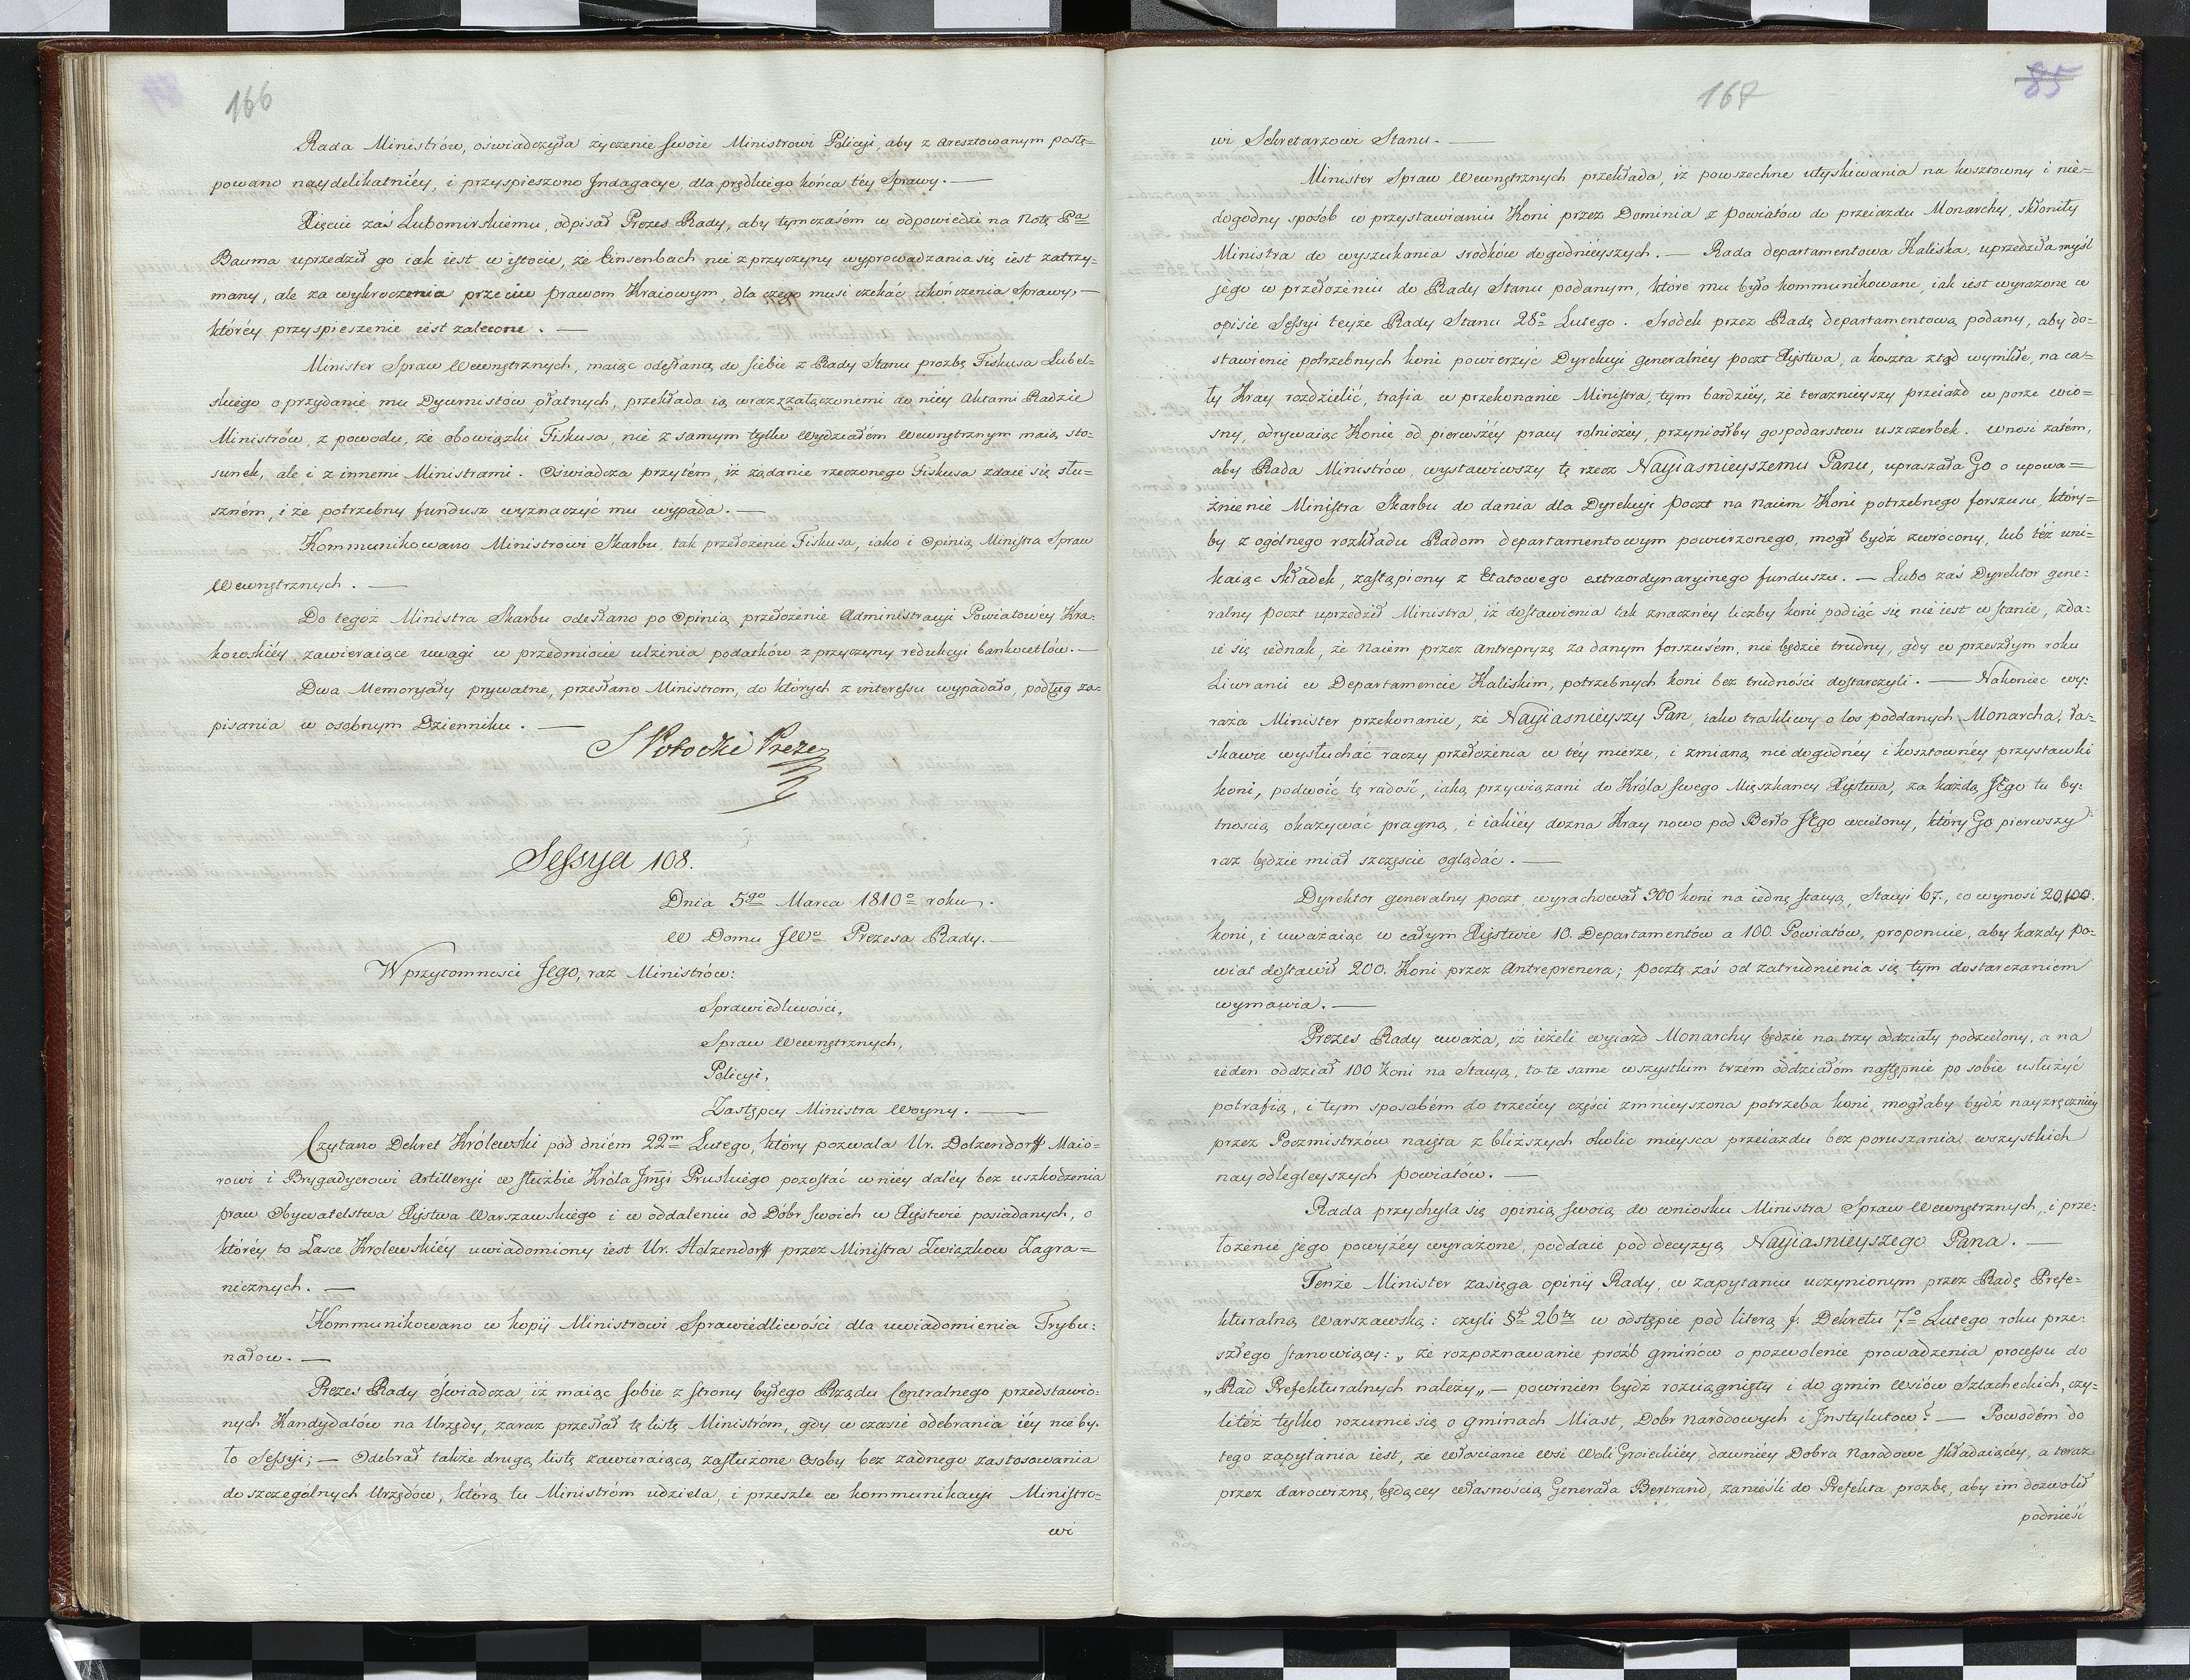 166
Rada Ministrów, oświadczyła życzenie swoie Ministrowi Policyi, aby z aresztowanym postę=
powano naydelikatniéy, i przyspieszono Indagacye, dla prędkiego końca téy Sprawy. —
Xięciu zaś Lubomirskiemu, odpisał Prezes Rady, aby tymczasém w odpowiedzi na Notę Pa
Bauma uprzedził go iak iest w istocie, że Einsenbach nie z przyczyny wyprowadzania się iest zatrzy=
many, ale za wykroczenia przeciw prawom Kraiowym, dla czego musi czekać ukończenia Sprawy, —
któréy przyspieszenie iest zalecone. —
Minister Spraw Wewnętrznych, maiąc odesłaną do siebie z Rady Stanu prozbę Fiskusa Lubel=
skiego o przydanie mu Dyurnistów płatnych, przekłada ią wraz z załączonemi do niéy aktami Radzie
Ministrów, z powodu, że obowiązki Fiskusa, nie z samym tylko Wydziałém Wewnętrznym maią sto=
sunek, ale i z innemi Ministrami. Oświadcza przytém, iż żądanie rzeczonego Fiskusa zdaie się słu=
szném, i że potrzebny fundusz wyznaczyć mu wypada. —
Kommunikowano Ministrowi Skarbu, tak przełożenie Fiskusa, iako i Opinią Ministra Spraw
Wewnętrznych. —
Do tegoż Ministra Skarbu odesłano po Opinią przełożenie Administracyi Powiatowéy Kra=
kowskiéy, zawieraiące uwagi w przedmiocie ulżenia podatków z przyczyny redukcyi bankocetlów. —
Dwa Memoryały prywatne, przesłano Ministrom, do których z interessu wypadało, podług za=
pisania w osobnym Dzienniku. —
S Potocki Prezes
Sessya 108.
Dnia 5go Marca 1810o roku.
W Domu JWo Prezesa Rady. —
W przytomności Jego, raz Ministrów:
Sprawiedliwości,
Spraw Wewnętrznych,
Policyi,
Zastępcy Ministra Woyny. —
Czytano Dekret Królewski pod dniém 22m Lutego, który pozwala Ur. Dolzendorff Maio=
rowi i Brygadyerowi Artilleryi w służbie Króla Jmći Pruskiego pozostać w niéy daléy bez uszkodzenia
praw Obywatelstwa Xięstwa Warszawskiego i w oddaleniu od Dóbr swoich w Xięstwie posiadanych, o
któréy to Łasce Krolewskiéy uwiadomiony iest Ur. Holzendorff przez Ministra Związkow Zagra=
nicznych. —
Kommunikowano w kopij Ministrowi Sprawiedliwości dla uwiadomienia Trybu=
nałow. —
Prezes Rady oświadcza iż maiąc sobie z strony byłego Rządu Centralnego przedstawio=
nych Kandydatów na Urzędy, zaraz przesłał tę listę Ministróm, gdy w czasie odebrania iéy nie by=
ło Sessyi; — Odebrał także drugą listę zawieraiącą zasłużone Osoby bez żadnego zastosowania
do szczególnych Urzędow, którą tu Ministróm udziela, i przeszle w kommunikacyi Ministro=
wi
167
85
wi Sekretarzowi Stanu. —
Minister Spraw Wewnętrznych przekłada, iż powszechne utyskiwania na kosztowny i nie=
dogodny sposób w przystawianiu Koni przez Dominia z Powiatów do przeiazdu Monarchy, skłoniły
Ministra do wyszukania srodków dogodniéyszych. — Rada departamentowa Kaliska, uprzedziła myśl
jego w przełożeniu do Rady Stanu podanym, które mu było kommunikowane, iak iest wyrażone w
opisie Sessyi teyże Rady Stanu 28o Lutego. Srodek przez Radę departamentową podany, aby do=
stawienie potrzebnych koni powierzyć Dyrekcyi generalnéy poczt Xięstwa, a koszta ztąd wynikłe, na ca=
ły Kray rozdzielić, trafia w przekonanie Ministra, tym bardziéy, że teraznieyszy przeiazd w porze wio=
sny, odrywaiąc Konie od pierwszéy pracy rolniczéy, przyniosłby gospodarstwu uszczerbek. Wnosi zatém,
aby Rada Ministrów, wystawiwszy tę rzecz Nayiasnieyszemu Panu, upraszała Go o upowa=
żnienie Ministra Skarbu do dania dla Dyrekcyi Poczt na naiem Koni potrzebnego forszusu, który=
by z ogólnego rozkładu Radom departamentowym powierzonego, mogł bydź zwrócony, lub też uni=
kaiąc składek, zastąpiony z Etatowego extraordynaryinego funduszu. — Lubo zaś Dyrektor gene=
ralny Poczt uprzedził Ministra, iż dostawienia tak znacznéy liczby koni podiąć się nie iest w stanie, zda=
ie się iednak, że Naiem przez Antrepryzę za danym forszusém, nie będzie trudny, gdy w przeszłym roku
Liwranci w Departamencie Kaliskim, potrzebnych koni bez trudności dostarczyli. — Nakoniec wy=
raża Minister przekonanie, że Nayiasnieyszy Pan, iako troskliwy o los poddanych Monarcha, ła=
skawie wysłuchać raczy przełożenia w téy mierze, i zmianą niedogodnéy i kosztownéy przystawki
koni, podwoić tę radość, iaką przywiązani do Króla swego Mięszkańcy Xięstwa, za każdą JEgo tu by=
tnością okazywać pragną, i iakiéy dozna Kray nowo pod Berło JEgo wcielony, który Go pierwszy
raz będzie miał szczęscie oglądać. —
Dyrektor generalny poczt, wyrachował 300 koni na iednę stacyą, Stacyi 67., co wynosi 20,100.
koni, i uważaiąc w całym Xięstwie 10. Departamentów a 100. Powiatów, proponuie, aby każdy Po=
wiat dostawił 200. Koni przez Antreprenera; Pocztę zaś od zatrudnienia się tym dostarczaniem
wymawia. —
Prezes Rady uważa, iż ieżeli wyiazd Monarchy będzie na trzy oddziały podzielony, a na
ieden oddział 100 koni na Stacyą, to te same wszystkim trzém oddziałom następnie po sobie usłużyć
potrafią, i tym sposobém do trzeciéy części zmnieyszona potrzeba koni, mogłaby bydź nayzręczniéy
przez Poczmistrzów naięta z bliższych okolic mieysca przeiazdu bez poruszania wszystkich
nayodlegleyszych Powiatów. —
Rada przychyla się opinią swoią do wniosku Ministra Spraw Wewnętrznych, i prze=
łożenie jego powyżéy wyrażone, poddaie pod decyzyą Nayiasnieyszego Pana. —
Tenże Minister zasięga opinij Rady, w zapytaniu uczynionym przez Radę Prefe=
kturalną Warszawską: czyli §f 26ty w odstępie pod literą f. Dekretu 7o Lutego roku prze=
szłego stanowiący: „że rozpoznawanie proźb gminów o pozwolenie prowadzenia processu do
„Rad Prefekturalnych należy„ — powinien bydź rozciągnięty i do gmin Wsiów Szlacheckich, czy=
liteż tylko rozumie się o gminach Miast, Dobr narodowych i Instytutow? — Powodém do
tego zapytania iest, że włoscianie Wsi Woli Groieckiéy, dawniéy Dobra Narodowe składaiącéy, a teraz
przez darowiznę, będącey własnością Generała Bertrand, zanieśli do Prefekta prozbę, aby im dozwolił
podnieść